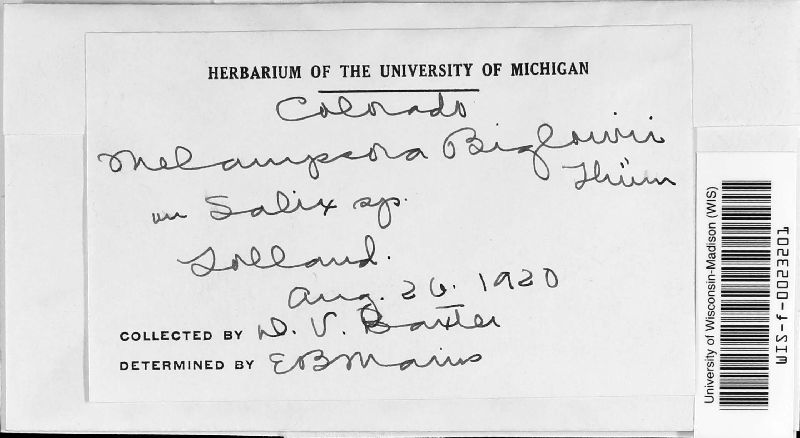 HERBARIUM OF THE UNIVERSITY OF MICHIGAN
Colorado
Melampsora Biglowii
Thüm
on Salix sp.
Tolland.
Aug. 26. 1920
COLLECTED BY D. V. Baxter
DETERMINED BY E B Mains
University of Wisconsin-Madison (WIS)
WIS-f-0023201